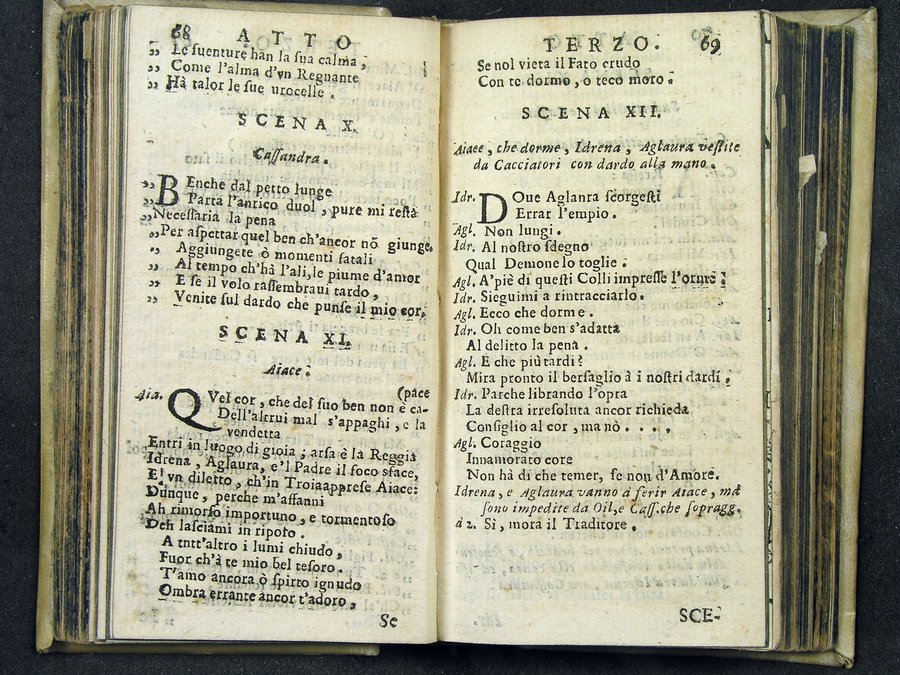 68 ATTO
„ Le suenture han la sua calma,
„ Come l'alma d'vn Regnante
„ Hà talor le sue procelle.
SCENA X.
Cassandra.
„ BEnche dal petto lunge
„ Parta l'antico duol, pure mi resta
„ Necessaria la pena
„ Per aspettar quel ben ch'ancor nõ giunge.
„ Aggiungete ò momenti fatali
„ Al tempo ch'hà l'ali, le piume d'amor
„ E se il volo rassembraui tardo,
„ Venite sul dardo che punse il mio cor.
SCENA XI.
Aiace.
Aia. QVel cor, che del suo ben non è ca- (pace
Dell'altrui mal s'appaghi, e la
vendetta
Entri in luogo di gioia; arsa è la Reggia
Idrena, Aglaura, e'l Padre il foco sface,
E' vn diletto, ch'in Troia apprese Aiace:
Dunque, perche m'affanni
Ah rimorso importuno, e tormentoso
Deh lasciami in riposo.
A tntt'altro i lumi chiudo,
Fuor ch'à te mio bel tesoro.
T'amo ancora ò spirto ignudo
Ombra errante ancor t'adoro,
Se
TERZO. 69
Se nol vieta il Fato crudo
Con te dormo, o teco moro.
SCENA XII.
Aiace, che dorme, Idrena, Aglaura vestite
da Cacciatori con dardo alla mano.
Idr. DOue Aglanra scorgesti
Errar l'empio.
Agl. Non lungi.
Idr. Al nostro sdegno
Qual Demone lo toglie.
Agl. A'piè di questi Colli impresse l'orme:
Idr. Sieguimi a rintracciarlo.
Agl. Ecco che dorme.
Idr. Oh come ben s'adatta
Al delitto la pena.
Agl. E che più tardi?
Mira pronto il bersaglio à i nostri dardi,
Idr. Parche librando l'opra
La destra irresoluta ancor richieda
Consiglio al cor, ma nò....
Agl. Coraggio
Innamorato core
Non hà di che temer, se non d'Amore.
Idrena, e Aglaura vanno à ferir Aiace, mà
sono impedite da Oil, e Cass. che sopragg.
à 2. Sì, mora il Traditore.
SCE-